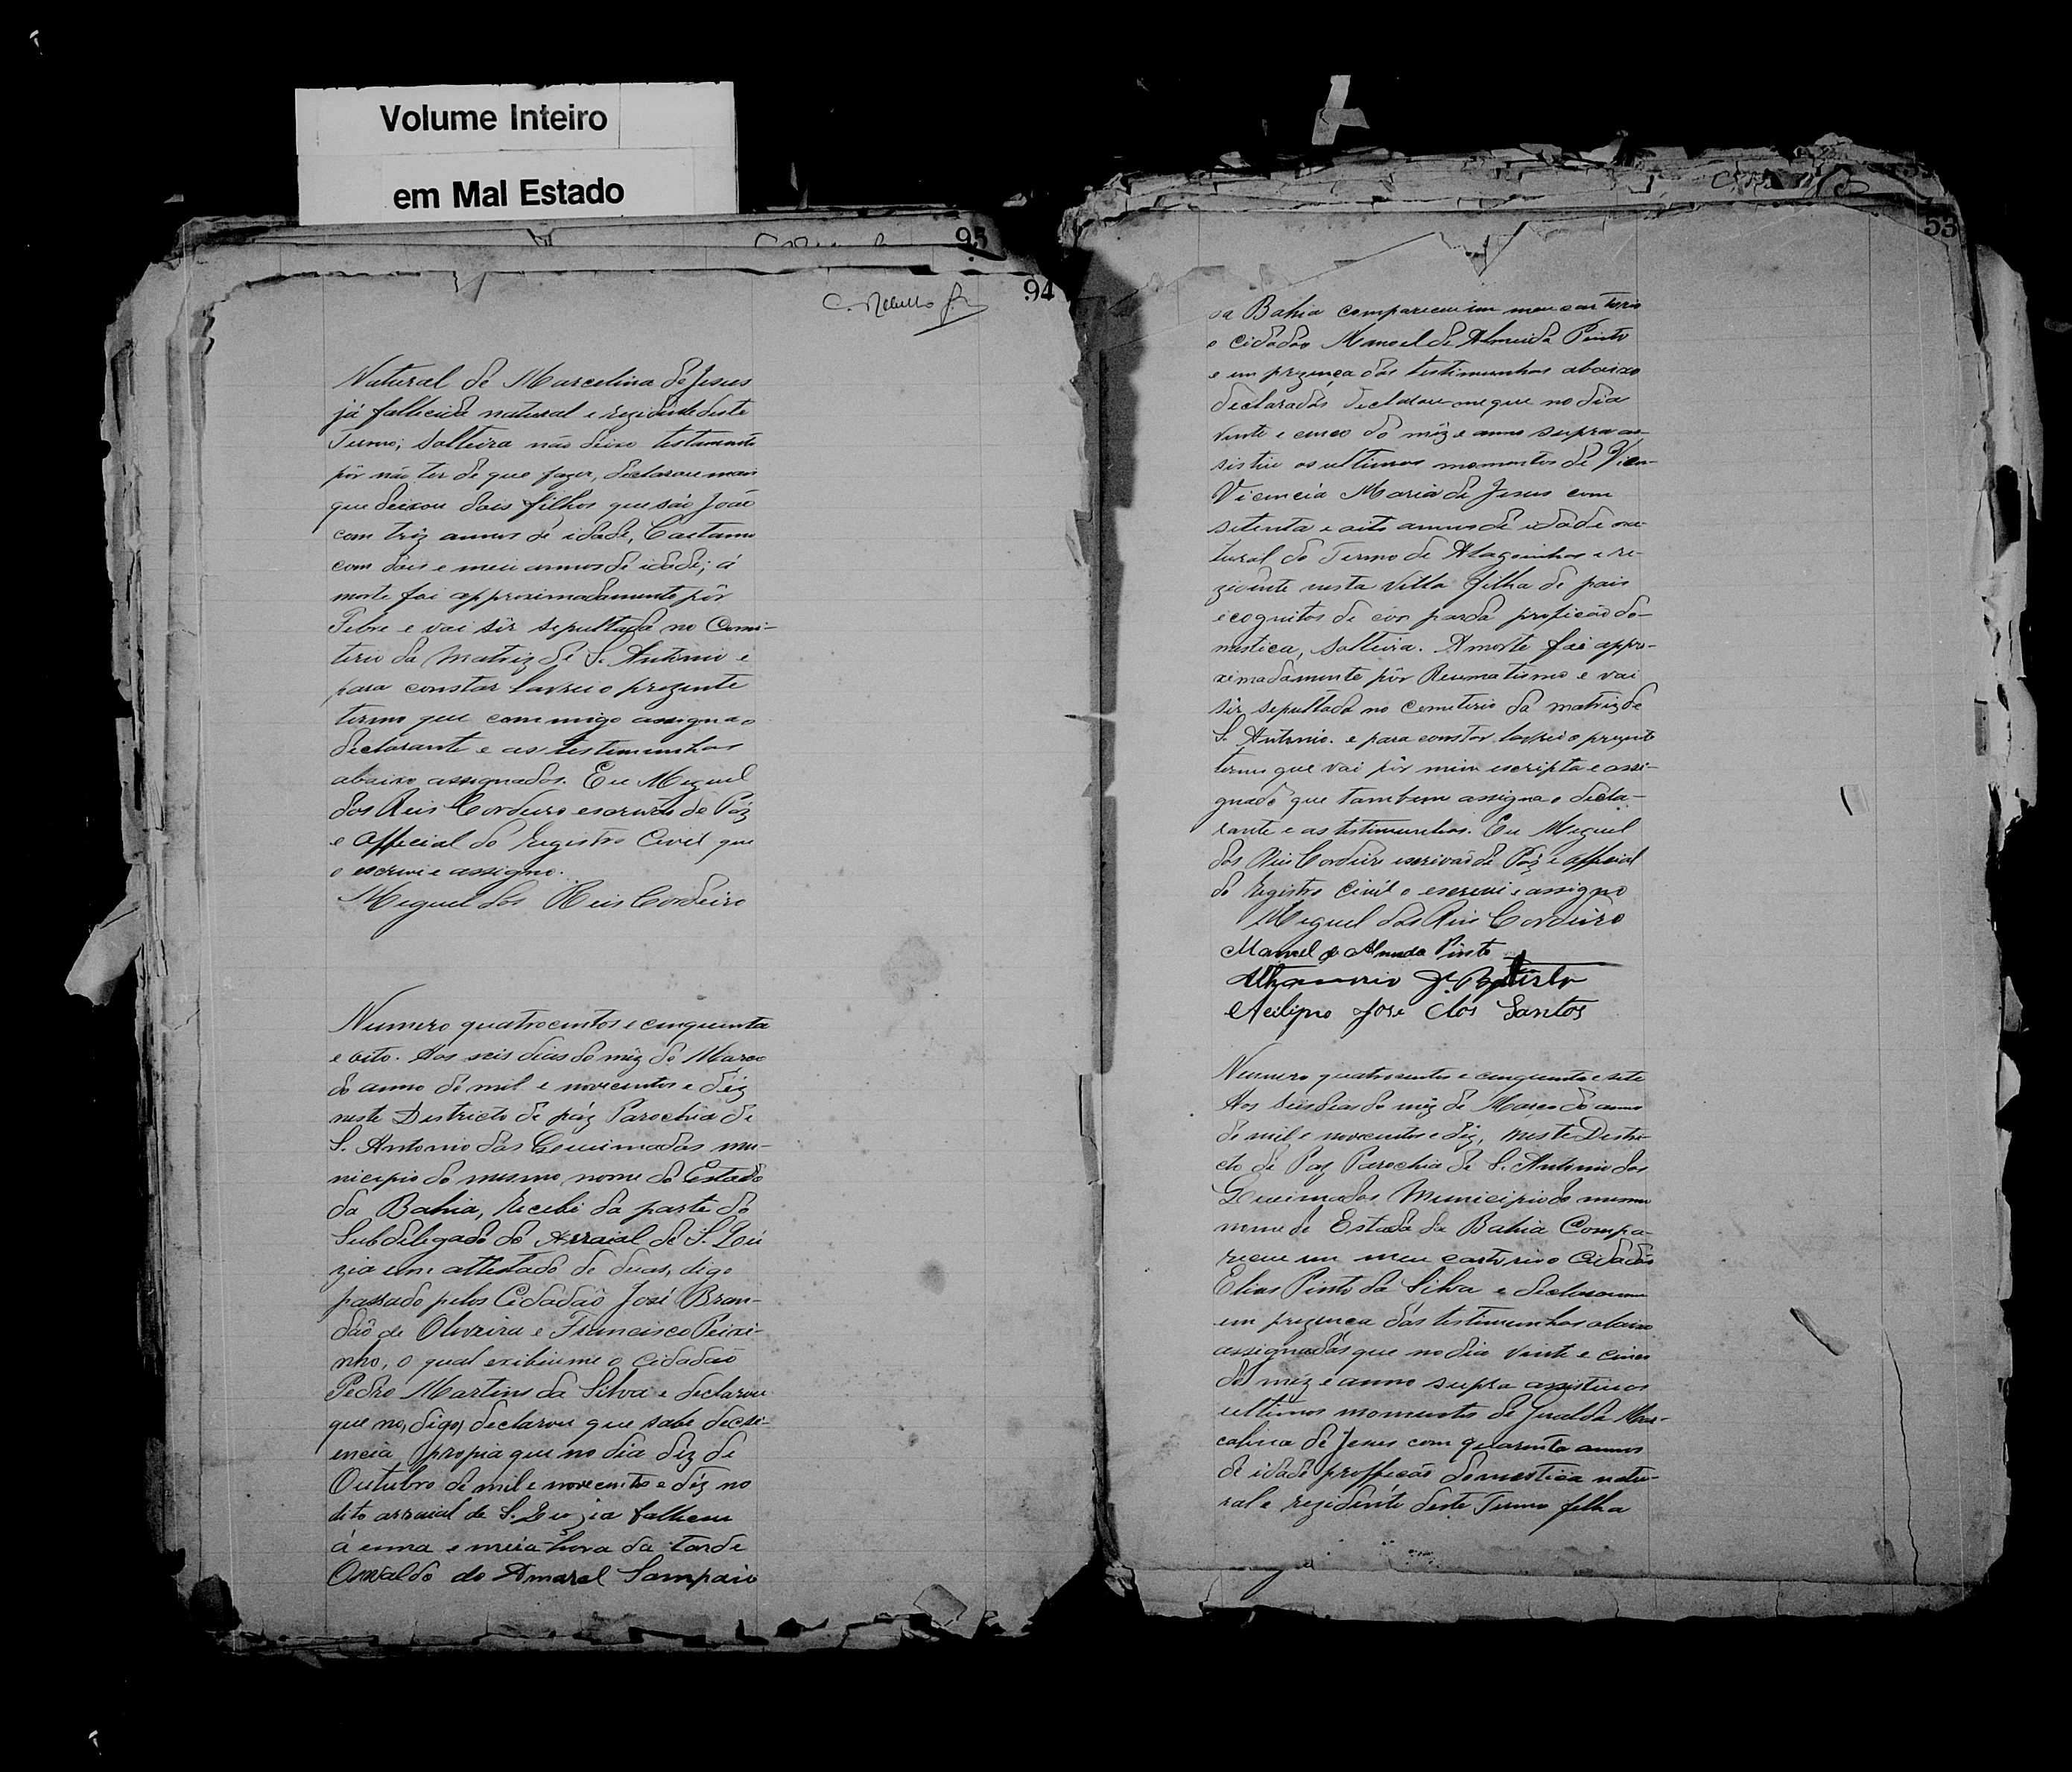 Volume Inteiro
em Mal Estado
95
94
Natural de Marcelina de Jesus
já fallicida natural e rezidente deste
Termo; Solteira não deixo testamento
pôr não ter de que fazer, declarou mais
que deixou dois filhos que são João
com trez annos de idade, Caetano
com dois e meio annos de idade; á
morte foi approximadamente pôr
Febre e vai sêr sepultada no Cemi-
terio da Matriz de S. Antonio e
para constar lavrei o prezente
termo que commigo assigna o
declarante e as testemunhas
abaixo assignados. Eu Miguel
dos Reis Cordeiro escrivão de Páz
e Official do Registro Civil que
o escrevi e assigno.
Miguel dos Reis Cordeiro
Numero quatrocentos e cinquenta
e oito. Aos seis dias do mêz de Março
do anno de mil e novecentos e déz
neste Districto de páz Parochia de
S. Antonio das Queimadas mu-
nicipio do mesmo nome do Estado
da Bahia, Recebi da parte do
Subdelegado do Arraial de S. Lou
zia um attestado de duas, digo
passado pelos Cidadão José Bran-
dão de Oliveira e Francisco Peixi-
nho, o qual exibiume o Cidadão
Pedro Martins da Silva e declarou
que no, digo, declarou que sabe de csi-
encia propia que no dia déz de
Outubro de mil e novecentos e déz no
dito arraial de S. Luzia falleceu
á uma e meia hora da tarde
Oswaldo do Amaral Sampaio
53
da Bahia compareceu im meu cartorio
o Cidadão Manoel de Almeida Pinto
e em prezença das testimunhas abaixo
declaradas declarou-me que no dia
vinte e cinco do mêz e anno supra as-
sistiu os ultimos momentos de Vicen-
Vicencia Maria de Jesus com
setenta e oito annos de idade na-
tural do Termo de Alagoinhas e re-
zidente nesta Villa filha de pais
icognitos de côr parda proficão do-
mestica, Solteira. A morte foi appro-
ximadamente pôr Reumatismo e vai
sêr sepultada no Cemiterio da matriz de
S. Antonio. e para constar lavrei o prezente
termo que vai pôr mim escripta e assi-
gnado que tambem assigna o decla-
rante e as testimunhas. Eu Miguel
dos Reis Cordeiro escrivão de Páz e Official
do Registro Civil o escrevi e assigno
Miguel dos Reis Cordeiro
Manoel de Almeida Pinto
J. Baptista
José dos Santos
Numero quatrosentos e cinquenta e sete
Aos seis dias do mêz de Março do anno
de mil e novecentos e déz, neste Distri-
cto de Paz Parochia de S. Antonio das
Queimadas Municipio do mesmo
nome do Estado da Bahia Compa-
receu im meu cartorio o Cidadão
Elias Pinto da Silva e declaroume
em prezença das testimunhas abaixo
assignadas que no dia vinte e cinco
do mêz e anno supra assistiu os
ultimos momentos de Jeralda Mar-
colina de Jesus com quarenta annos
de idade proffição domestica natu-
ral e rezidente deste Termo filha